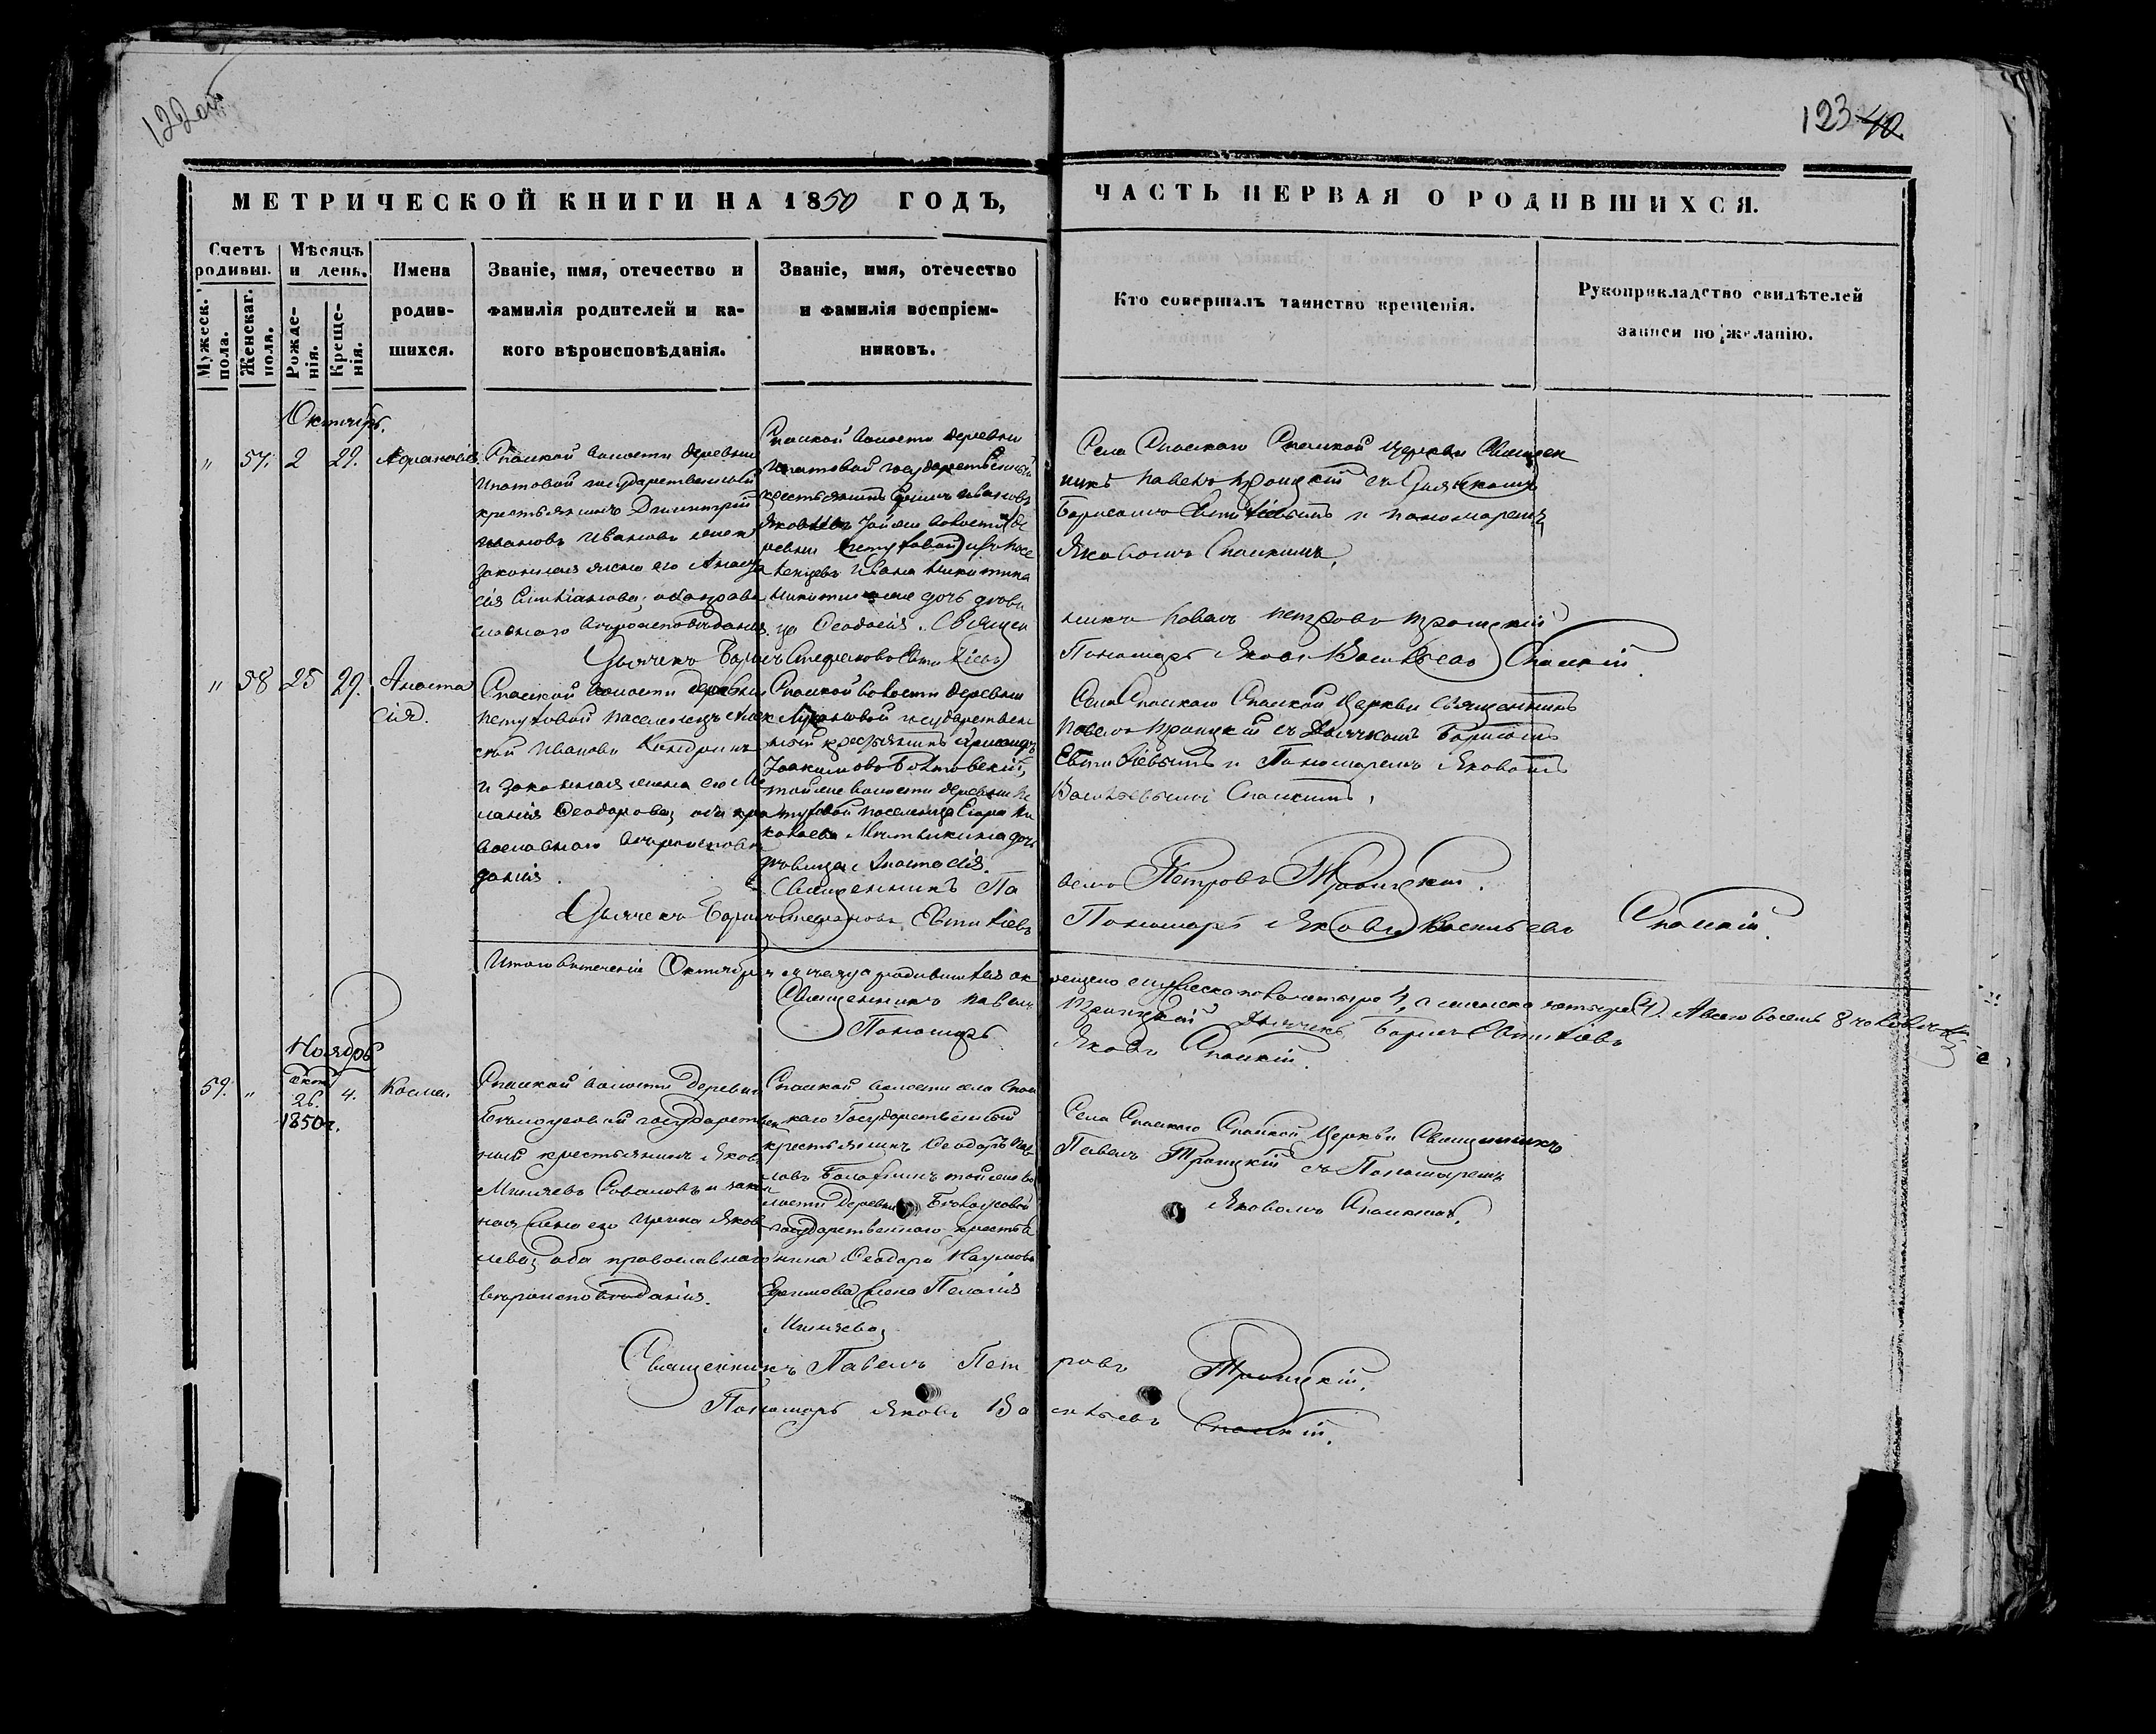 122 об.
123 40
МЕТРИЧЕСКОЙ КНИГИ НА 1850 ГОДЪ,
ЧАСТЬ ПЕРВАЯ О РОДИВШИХСЯ.
Счетъ родивш.
Мужеск. пола.
Женскаг. пола.
Мѣсяцъ и день.
Рожде-
нія.
Креще-
нія.
Имена
родив-
шихся.
Званіе, имя, отечество и
фамилія родителей и ка-
кого вѣроисповѣданія.
Званіе, имя, отечество
и фамилія воспріем-
никовъ.
Кто совершалъ таинство крещенія.
Рукоприкладство свидѣтелей
записи по желанію.
Октябрь.
" 57. 2 29.
Спаской волости деревни
государственный
крестьянинъ Димитрій
Ивановъ
законная жена его Анаста
сія оба право
славнаго вѣроисповѣданія.
Спаской волости деревни
государственный
крестьянинъ Ивановъ
Яковлевъ той же волости де
ревни Петуховой
Ивана Никитина
дочь дѣви
ца Ѳеодосія. Священ
Села Спаскаго Спаской Церкви Священ
никъ Павелъ Троицкій съ Дьячкомъ
Борисомъ Евтихіевымъ и пономаремъ
Яковомъ Спаскимъ.
никъ Павелъ Петровъ Троицкій
Дьячекъ Борисъ Стефановъ Евтихіевъ
Пономарь Яковъ Васильевъ Спаскій.
" 58 25 29. Анаста
сія.
Спаской волости деревни
Петуховой поселенецъ Алек
сѣй Ивановъ
и законная жена его Ме
ланія Ѳеодорова, оба пра
вославнаго вѣроисповѣ
данія.
Спаской волости деревни
государствен
ный крестьянинъ
Іоакимовъ
той же волости деревни Пе
туховой поселенца Ни
колаева дочь
дѣвица Анастасія.
Священникъ Па
Села Спаскаго Спаской Церкви Священникъ
Павелъ Троицкій съ Дьячкомъ Борисомъ
Евтихіевымъ и Пономаремъ Яковомъ
Васильевымъ Спаскимъ.
велъ Петровъ Троицкій.
Дьячекъ Борисъ Стефановъ Евтихіевъ
Пономарь Яковъ Васильевъ Спаскій.
Итого въ теченіи Октября мѣсяца родившихся ок
рещено мужеска пола четыре 4, а женска четыре (4). А всего восемь 8 человѣкъ
Священникъ Павелъ
Троицкій Дьячекъ Борисъ Евтихіевъ
Пономарь
Яковъ Спаскій.
Ноябрь
59. " Окт. 26. 1850 г. 4. Косма.
Спаской волости деревни
Бѣлоусовой государствен
ный крестьянинъ Яковъ
Минѣевъ и закон
ная жена его Ирина Яков
лева, оба православнаго
вѣроисповѣданія.
Спаской волости села Спас
каго Государственный
крестьянинъ Ѳеодоръ
той же во
лости деревни Бѣлоусовой
государственнаго крестья
нина Ѳеодора Наумова
Ефимова жена Пелагія
Минѣева,
Села Спаскаго Спаской Церкви Священникъ
Павелъ Троицкій съ Пономаремъ
Яковомъ Спаскимъ.
Священникъ Павелъ Петровъ Троицкій.
Пономарь Яковъ Васильевъ Спаскій.